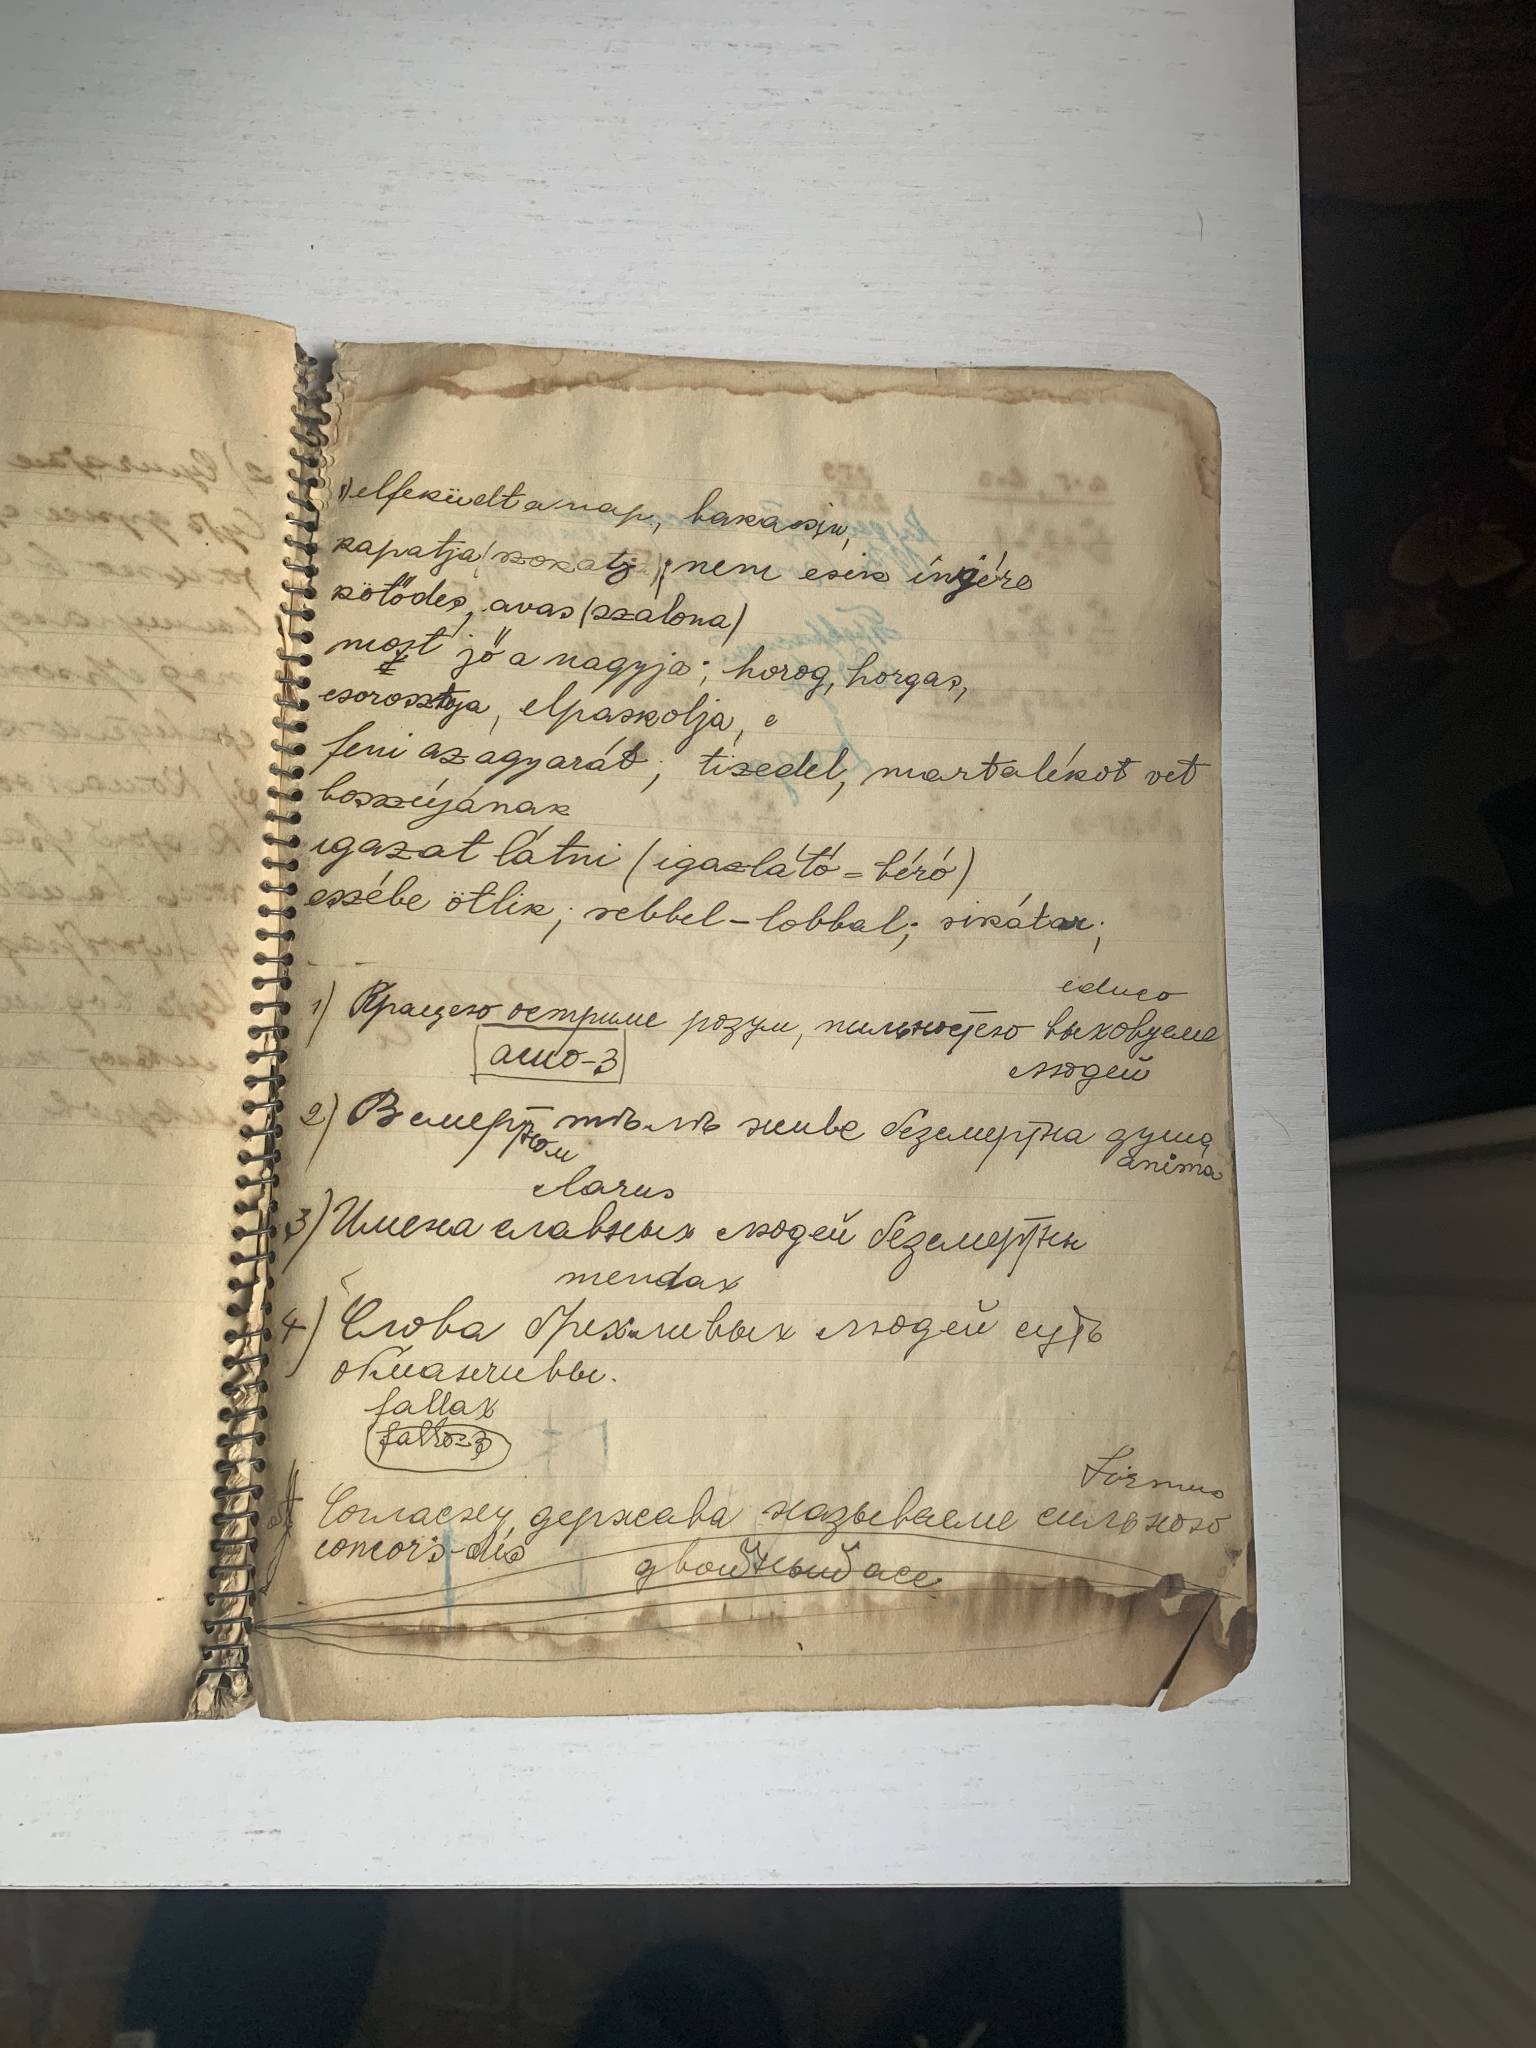 1) elfeküdt a nap, bakasin,
kapatja (szokatj); nem esik ingére
kötődés, avas (szalona)
most jő a nagyja; horog, horgas,
csorosztya, elpaskolja, c
feni az agyarát; tizedel, martalékot vet
boszújának
igazat látni (igazlátó = bíró)
eszébe ötlik; rebbel-lobbal; sikátor;
educo
1) Працею остриме розум, пильностею выховуеме
acuo-3
людей
2) В смертном тѣлѣ живе безсмертна душа
anima
clarus
3) Имена славных людей безсмертны
mendax
4) Слова брехливых людей суть
обманчивы.
fallax
fallo-3
Firmus
5) Согласну державу называеме сильною
concors-dis
двойный асс